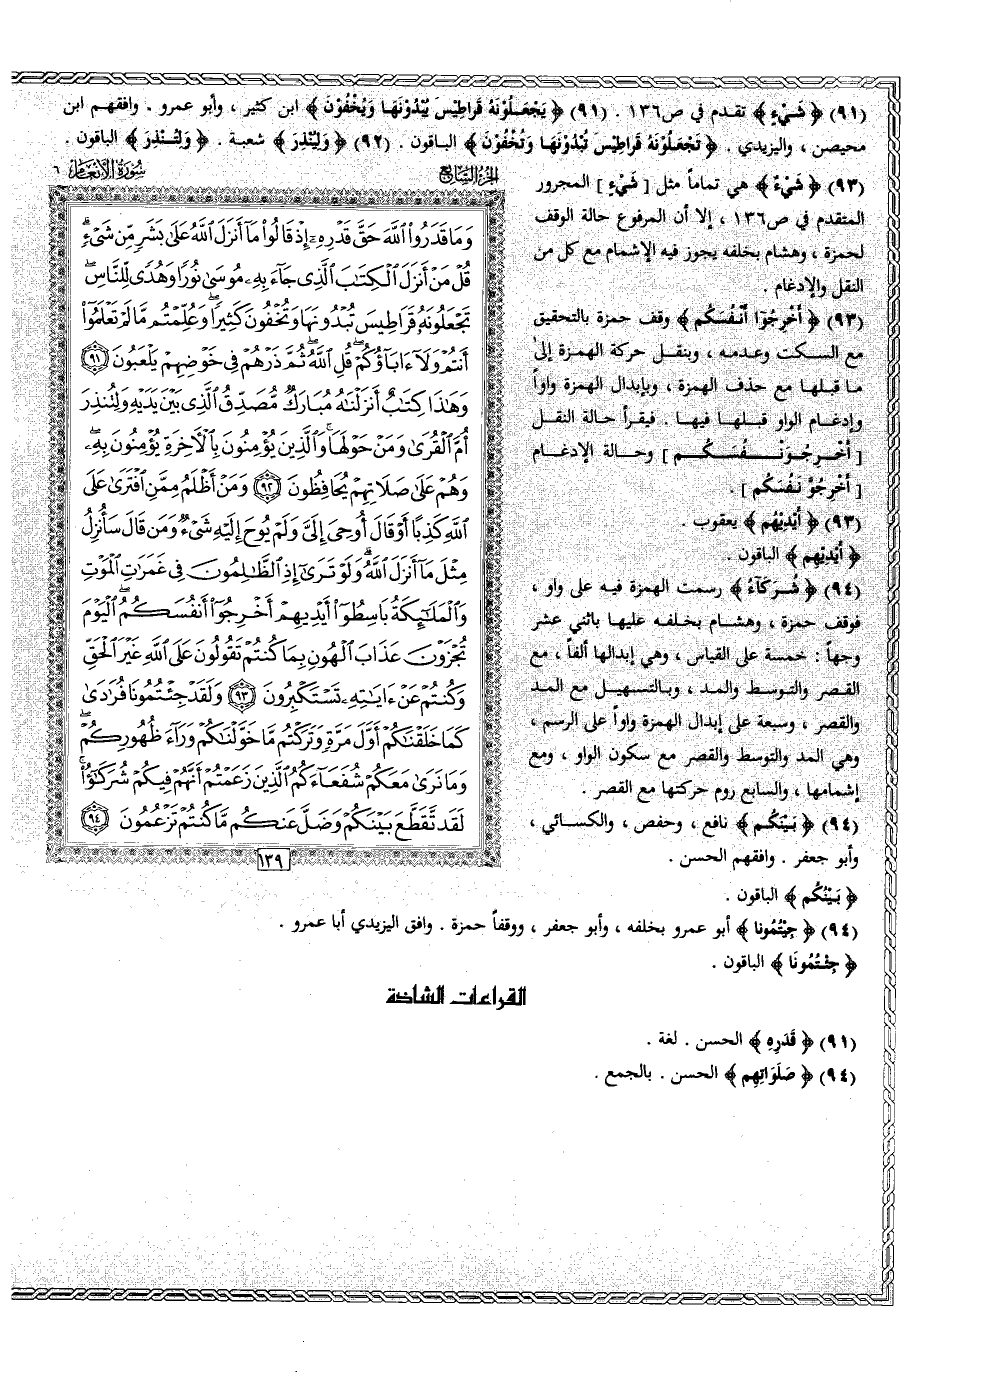 (٩١) ﴿ شَيْءٍ ﴾ تقدم في ص١٣٦ . (٩١) ﴿ يَجْعَلُونَهُ قَرَاطِيسَ يُبْدُونَهَا وَيُخْفُونَ ﴾ ابن كثير ، وأبو عمرو . وافقهم ابن
محيصن ، واليزيدي . ﴿ تَجْعَلُونَهُ قَرَاطِيسَ تُبْدُونَهَا وَتُخْفُونَ ﴾ الباقون . (٩٢) ﴿ وَلِيُنْذِرَ ﴾ شعبة . ﴿ وَلِتُنْذِرَ ﴾ الباقون .
(٩٣) ﴿ شَيْءٌ ﴾ هي تماماً مثل [ شَيْءٍ ] المجرور
المتقدم في ص١٣٦ ، إلا أن المرفوع حالة الوقف
لحمزة ، وهشام بخلفه يجوز فيه الإشمام مع كل من
النقل والإدغام .
(٩٣) ﴿ أَخْرِجُوٓا أَنْفُسَكُم ﴾ وقف حمزة بالتحقيق
مع السكت وعدمه ، وبنقل حركة الهمزة إلى
ما قبلها مع حذف الهمزة ، وبإبدال الهمزة واواً
وإدغام الواو قبلها فيها . فيقرأ حالة النقل
[ أَخْرِجُوَنْفُسَكُم ] وحالة الإدغام
[ أَخْرِجُوَّنْفُسَكُم ] .
(٩٣) ﴿ أَيْدِيْهُم ﴾ يعقوب .
﴿ أَيْدِيْهِم ﴾ الباقون .
(٩٤) ﴿ شُرَكَآءُ ﴾ رسمت الهمزة فيه على واو ،
فوقف حمزة ، وهشام بخلفه عليها باثني عشر
وجهاً : خمسة على القياس ، وهي إبدالها ألفاً ، مع
القصر والتوسط والمد ، وبالتسهيل مع المد
والقصر ، وسبعة على إبدال الهمزة واواً على الرسم ،
وهي المد والتوسط والقصر مع سكون الواو ، ومع
إشمامها ، والسابع روم حركتها مع القصر .
(٩٤) ﴿ بَيْنَكُم ﴾ نافع ، وحفص ، والكسائي ،
وأبو جعفر . وافقهم الحسن .
﴿ بَيْنُكُم ﴾ الباقون .
(٩٤) ﴿ جِيْتُمُونا ﴾ أبو عمرو بخلفه ، وأبو جعفر ، ووقفاً حمزة . وافق اليزيدي أبا عمرو .
﴿ جِئْتُمُونَا ﴾ الباقون .
القراءات الشاذة
(٩١) ﴿ قَدَرِهِ ﴾ الحسن . لغة .
(٩٤) ﴿ صَلَوَاتِهِم ﴾ الحسن . بالجمع .
الجزء السابع
سورة الأنعام ٦
وَمَا قَدَرُوا۟ ٱللَّهَ حَقَّ قَدْرِهِۦٓ إِذْ قَالُوا۟ مَآ أَنزَلَ ٱللَّهُ عَلَىٰ بَشَرٍ مِّن شَىْءٍۗ
قُلْ مَنْ أَنزَلَ ٱلْكِتَٰبَ ٱلَّذِى جَآءَ بِهِۦ مُوسَىٰ نُورًا وَهُدًى لِّلنَّاسِۖ
تَجْعَلُونَهُۥ قَرَاطِيسَ تُبْدُونَهَا وَتُخْفُونَ كَثِيرًاۖ وَعُلِّمْتُم مَّا لَمْ تَعْلَمُوٓا۟
أَنتُمْ وَلَآ ءَابَآؤُكُمْۖ قُلِ ٱللَّهُۖ ثُمَّ ذَرْهُمْ فِى خَوْضِهِمْ يَلْعَبُونَ ٩١
وَهَٰذَا كِتَٰبٌ أَنزَلْنَٰهُ مُبَارَكٌ مُّصَدِّقُ ٱلَّذِى بَيْنَ يَدَيْهِ وَلِتُنذِرَ
أُمَّ ٱلْقُرَىٰ وَمَنْ حَوْلَهَاۚ وَٱلَّذِينَ يُؤْمِنُونَ بِٱلْءَاخِرَةِ يُؤْمِنُونَ بِهِۦۖ
وَهُمْ عَلَىٰ صَلَاتِهِمْ يُحَافِظُونَ ٩٢ وَمَنْ أَظْلَمُ مِمَّنِ ٱفْتَرَىٰ عَلَى
ٱللَّهِ كَذِبًا أَوْ قَالَ أُوحِىَ إِلَىَّ وَلَمْ يُوحَ إِلَيْهِ شَىْءٌ وَمَن قَالَ سَأُنزِلُ
مِثْلَ مَآ أَنزَلَ ٱللَّهُۗ وَلَوْ تَرَىٰٓ إِذِ ٱلظَّٰلِمُونَ فِى غَمَرَٰتِ ٱلْمَوْتِ
وَٱلْمَلَٰٓئِكَةُ بَاسِطُوٓا۟ أَيْدِيهِمْ أَخْرِجُوٓا۟ أَنفُسَكُمُۖ ٱلْيَوْمَ
تُجْزَوْنَ عَذَابَ ٱلْهُونِ بِمَا كُنتُمْ تَقُولُونَ عَلَى ٱللَّهِ غَيْرَ ٱلْحَقِّ
وَكُنتُمْ عَنْ ءَايَٰتِهِۦ تَسْتَكْبِرُونَ ٩٣ وَلَقَدْ جِئْتُمُونَا فُرَٰدَىٰ
كَمَا خَلَقْنَٰكُمْ أَوَّلَ مَرَّةٍ وَتَرَكْتُم مَّا خَوَّلْنَٰكُمْ وَرَآءَ ظُهُورِكُمْۖ
وَمَا نَرَىٰ مَعَكُمْ شُفَعَآءَكُمُ ٱلَّذِينَ زَعَمْتُمْ أَنَّهُمْ فِيكُمْ شُرَكَٰٓؤُا۟ۚ
لَقَد تَّقَطَّعَ بَيْنَكُمْ وَضَلَّ عَنكُم مَّا كُنتُمْ تَزْعُمُونَ ٩٤
١٣٩